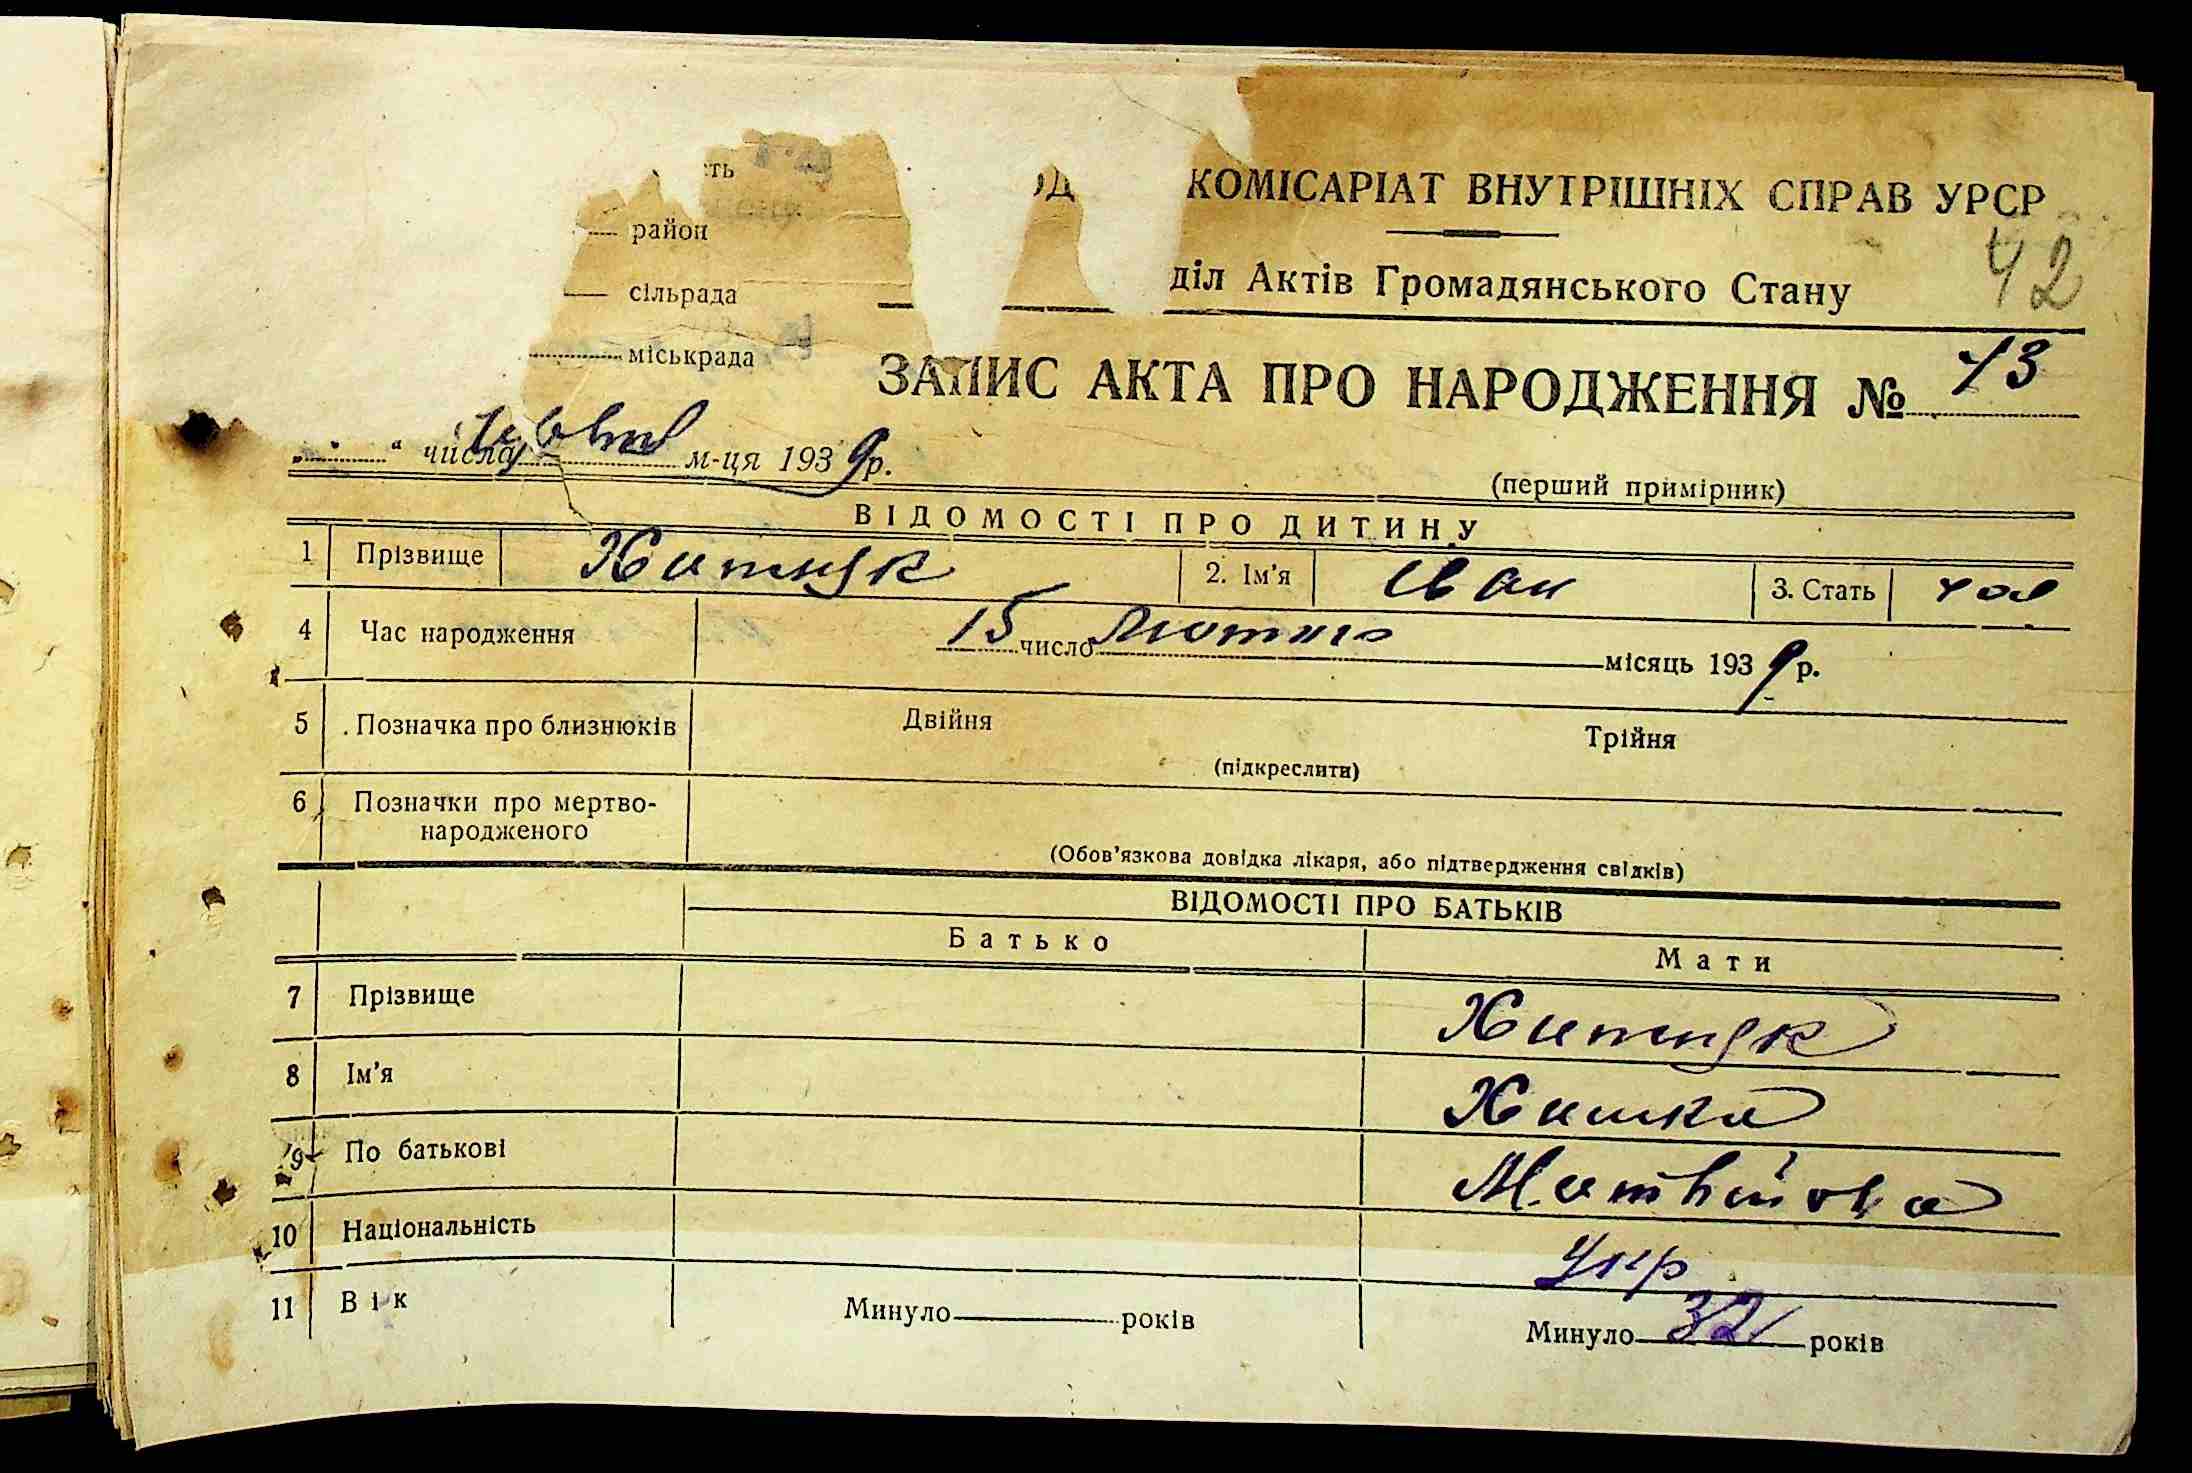 ть
район
сільрада
міськрада
КОМІСАРІАТ ВНУТРІШНІХ СПРАВ УРСР
діл Актів Громадянського Стану
42
ЗАПИС АКТА ПРО НАРОДЖЕННЯ № 43
„ “ числа м-ця 1939 р.
(перший примірник)
ВІДОМОСТІ ПРО ДИТИНУ
1 Прізвище 2. Ім'я Іван 3. Стать чол
4 Час народження 15 число Лютого місяць 1939 р.
5 Позначка про близнюків Двійня Трійня
(підкреслити)
6 Позначки про мертво-
народженого
(Обов'язкова довідка лікаря, або підтвердження свідків)
ВІДОМОСТІ ПРО БАТЬКІВ
Батько Мати
7 Прізвище
8 Ім'я
9 По батькові Матвійовна
10 Національність Укр
11 Вік Минуло років Минуло 32 років